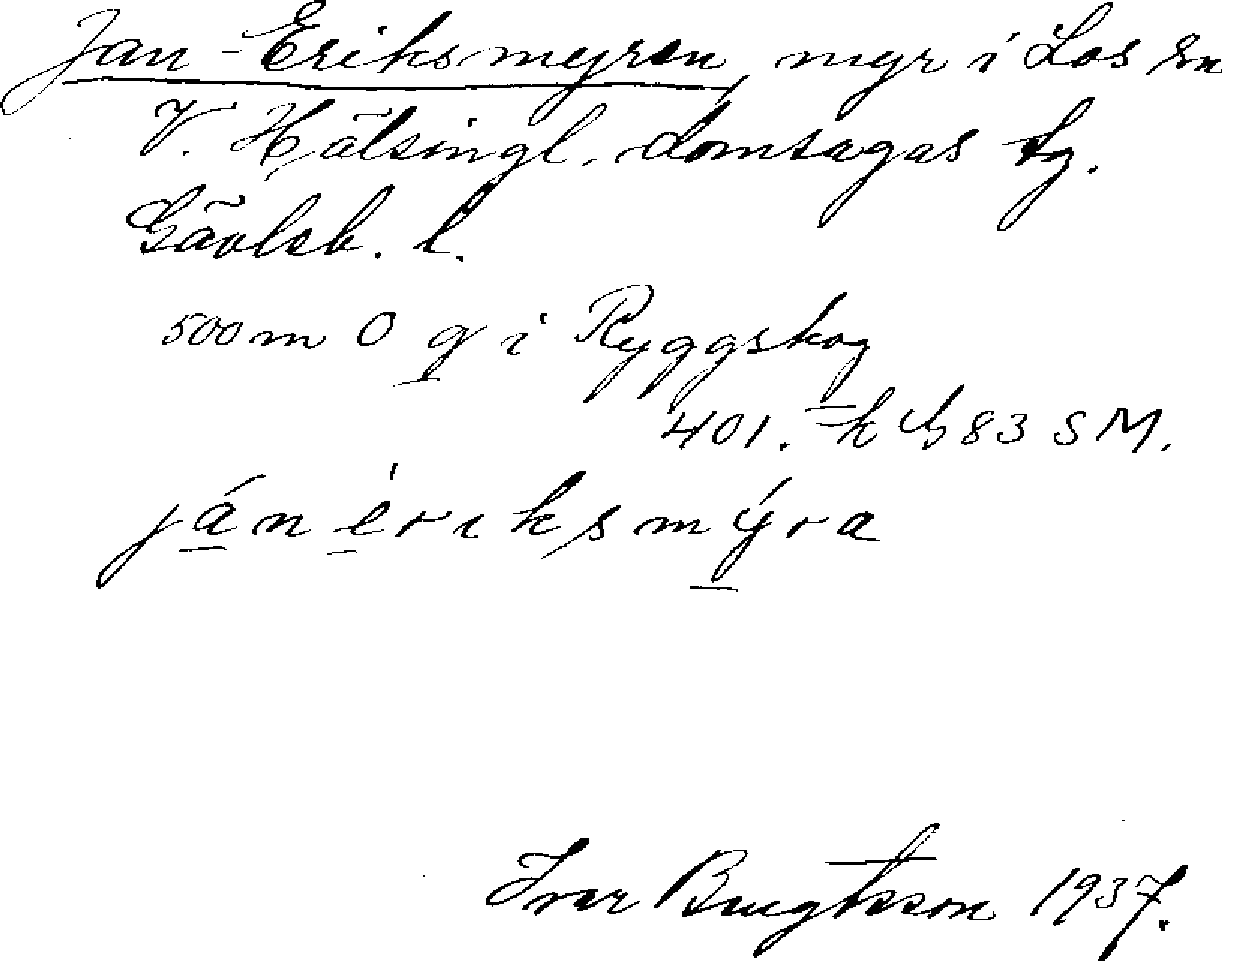 Jan-Eriksmyren, myr i Los sn
V. Hälsingl. domsagas tg.
Gävleb. l.
500 m O g i Ryggskog
401. k 83 SM.
ján ériksmýra
Ivar Bengtsson 1937.